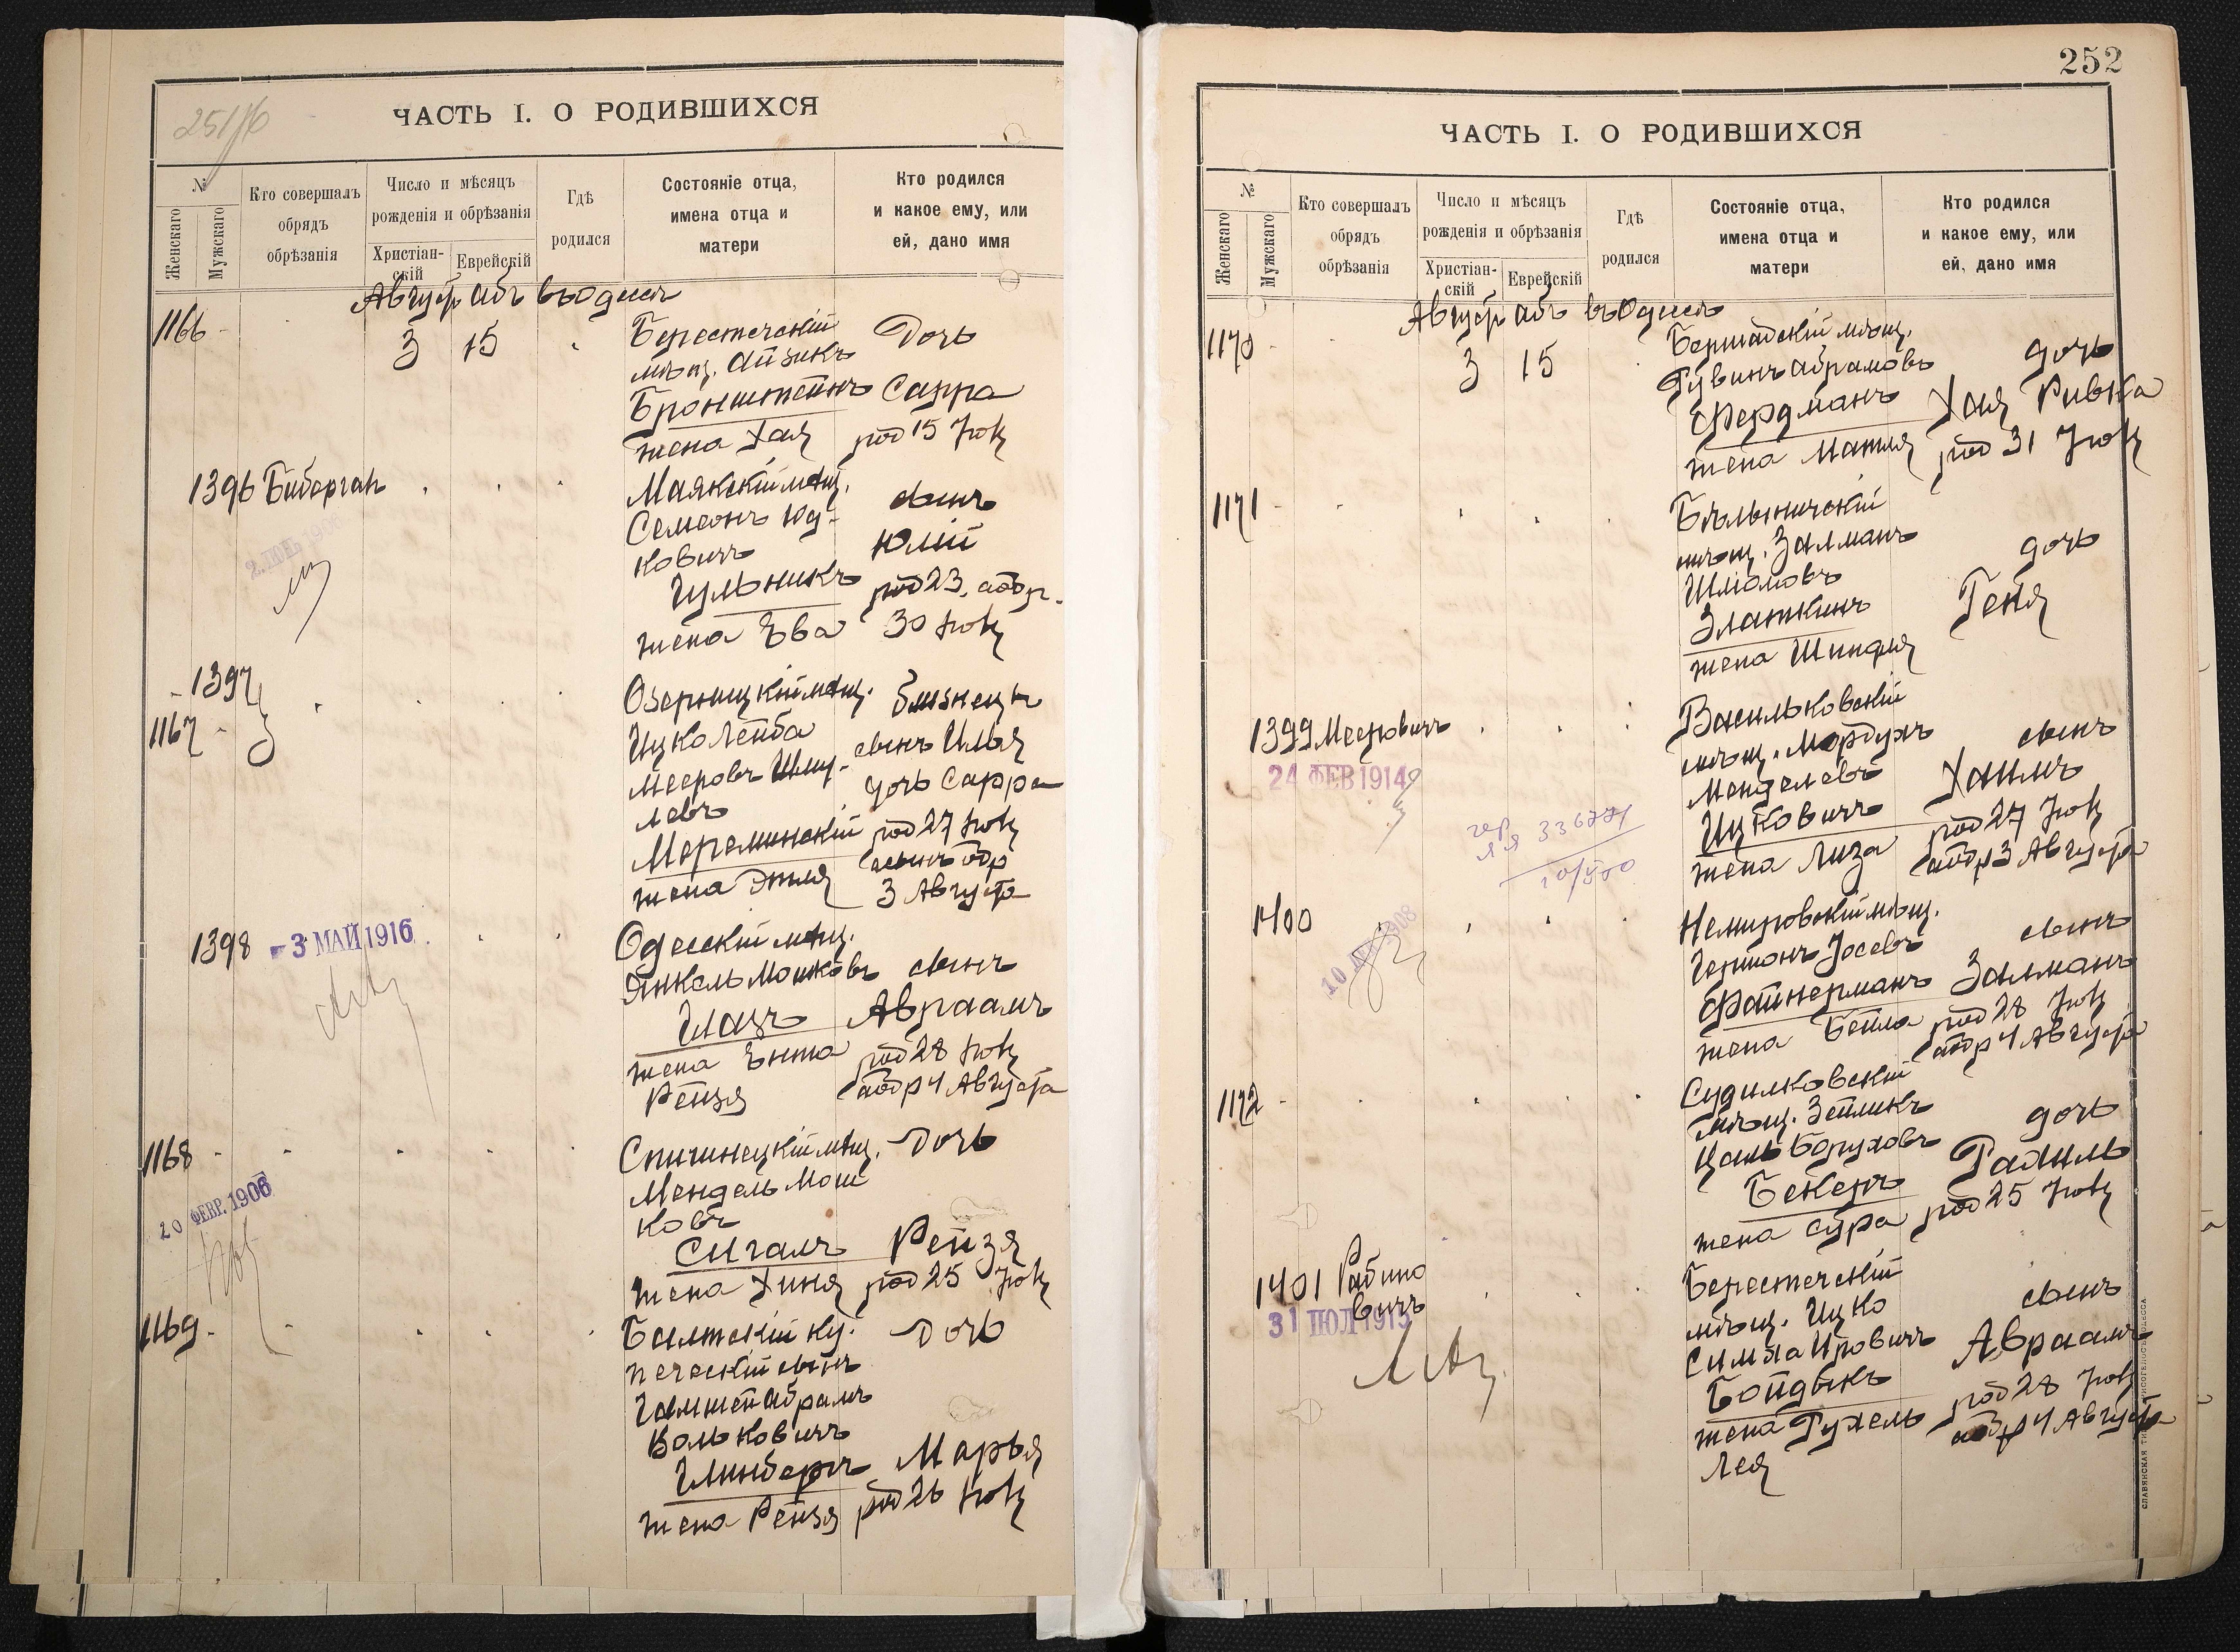 251/б
ЧАСТЬ I. О РОДИВШИХСЯ
№
Женскаго
Мужскаго
Кто совершалъ
обрядъ
обрѣзанія
Число и мѣсяцъ
рожденія и обрѣзанія
Христіан-
скій
Еврейскій
Гдѣ
родился
Состояніе отца,
имена отца и
матери
Кто родился
и какое ему, или
ей, дано имя
Август абъ въ Одессѣ
1166
3 15
Берестечскій
мѣщ. Айзикъ
Бронштейнъ
жена Хая
Дочь
Сарра
род 15 Іюля
1396 Биберган
Маякскій мѣщ.
Семеонъ Юд-
ковичъ
Гульникъ
жена Ева
сынъ
Юлій
род 23, аобр.
30 Іюля
1397
1167
Ицко Лейба
Мееровъ Шму-
левъ
жена Этля
близнецы
сынъ Илья
дочь Сарра
род 27 Іюля
сынъ обр
3 Августа
1398 - 3 МАЙ 1916
Одесскій мѣщ.
Янкель Мошковъ
Глазъ
жена Ента
Рейзя
сынъ
Авраамъ
род 28 Іюля
аобр 4 Августа
1168
20 ФЕВР. 1906
Спичинецкій мѣщ.
Мендель Мош
ковъ
Сигалъ
жена Хиня
Дочь
Рейзя
род 25 Іюля
1169
Балтскій ку-
печескій сынъ
Абрамъ
Вольковичъ
Глинбергъ
жена Рейзя
Дочь
Марья
род 26 Іюля
252
ЧАСТЬ I. О РОДИВШИХСЯ
№
Женскаго
Мужскаго
Кто совершалъ
обрядъ
обрѣзанія
Число и мѣсяцъ
рожденія и обрѣзанія
Христіан-
скій
Еврейскій
Гдѣ
родился
Состояніе отца,
имена отца и
матери
Кто родился
и какое ему, или
ей, дано имя
Август абъ въ Одессѣ
1170
3 15
Бершадскій мѣщ.
Рувинъ Абрамовъ
Фердманъ
жена Матля
дочь
Хая Ривка
род 31 Іюля
1171
Бѣлыничскій
мѣщ. Залманъ
Шліомовъ
Златкинъ
жена Шифля
дочь
Геня
1399 Мееровичъ
24 ФЕВ 1914
Васильковскій
мѣщ. Мордухъ
Менделевъ
Ицковичъ
жена Лиза
сынъ
Хаимъ
род 27 Іюля
аобр 3 Августа
1400
Немировскій мѣщ.
Гершонъ Іосевъ
Файнерманъ
жена Бейла
сынъ
Залманъ
род 28 Іюля
аобр 4 Августа
1172
Судилковскій
мѣщ. Зейликъ
Цаль Боруховъ
Бекеръ
жена Сура
дочь
Рахиль
род 25 Іюля
1401 Рабино
вичъ
31 ІЮЛ 1915
Берестечскій
мѣщ. Ицко
Симха Ировичъ
Бойдыкъ
жена Рухель
Лея
сынъ
Авраамъ
род 28 Іюля
аобр 4 Августа